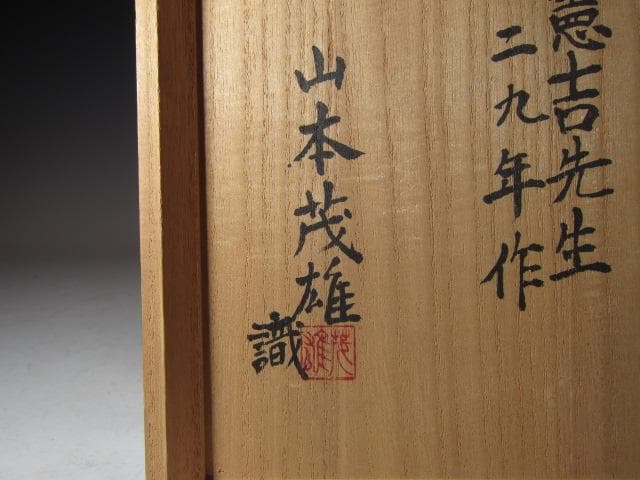 憲吉先生
二九年作
山本茂雄
識
茂雄